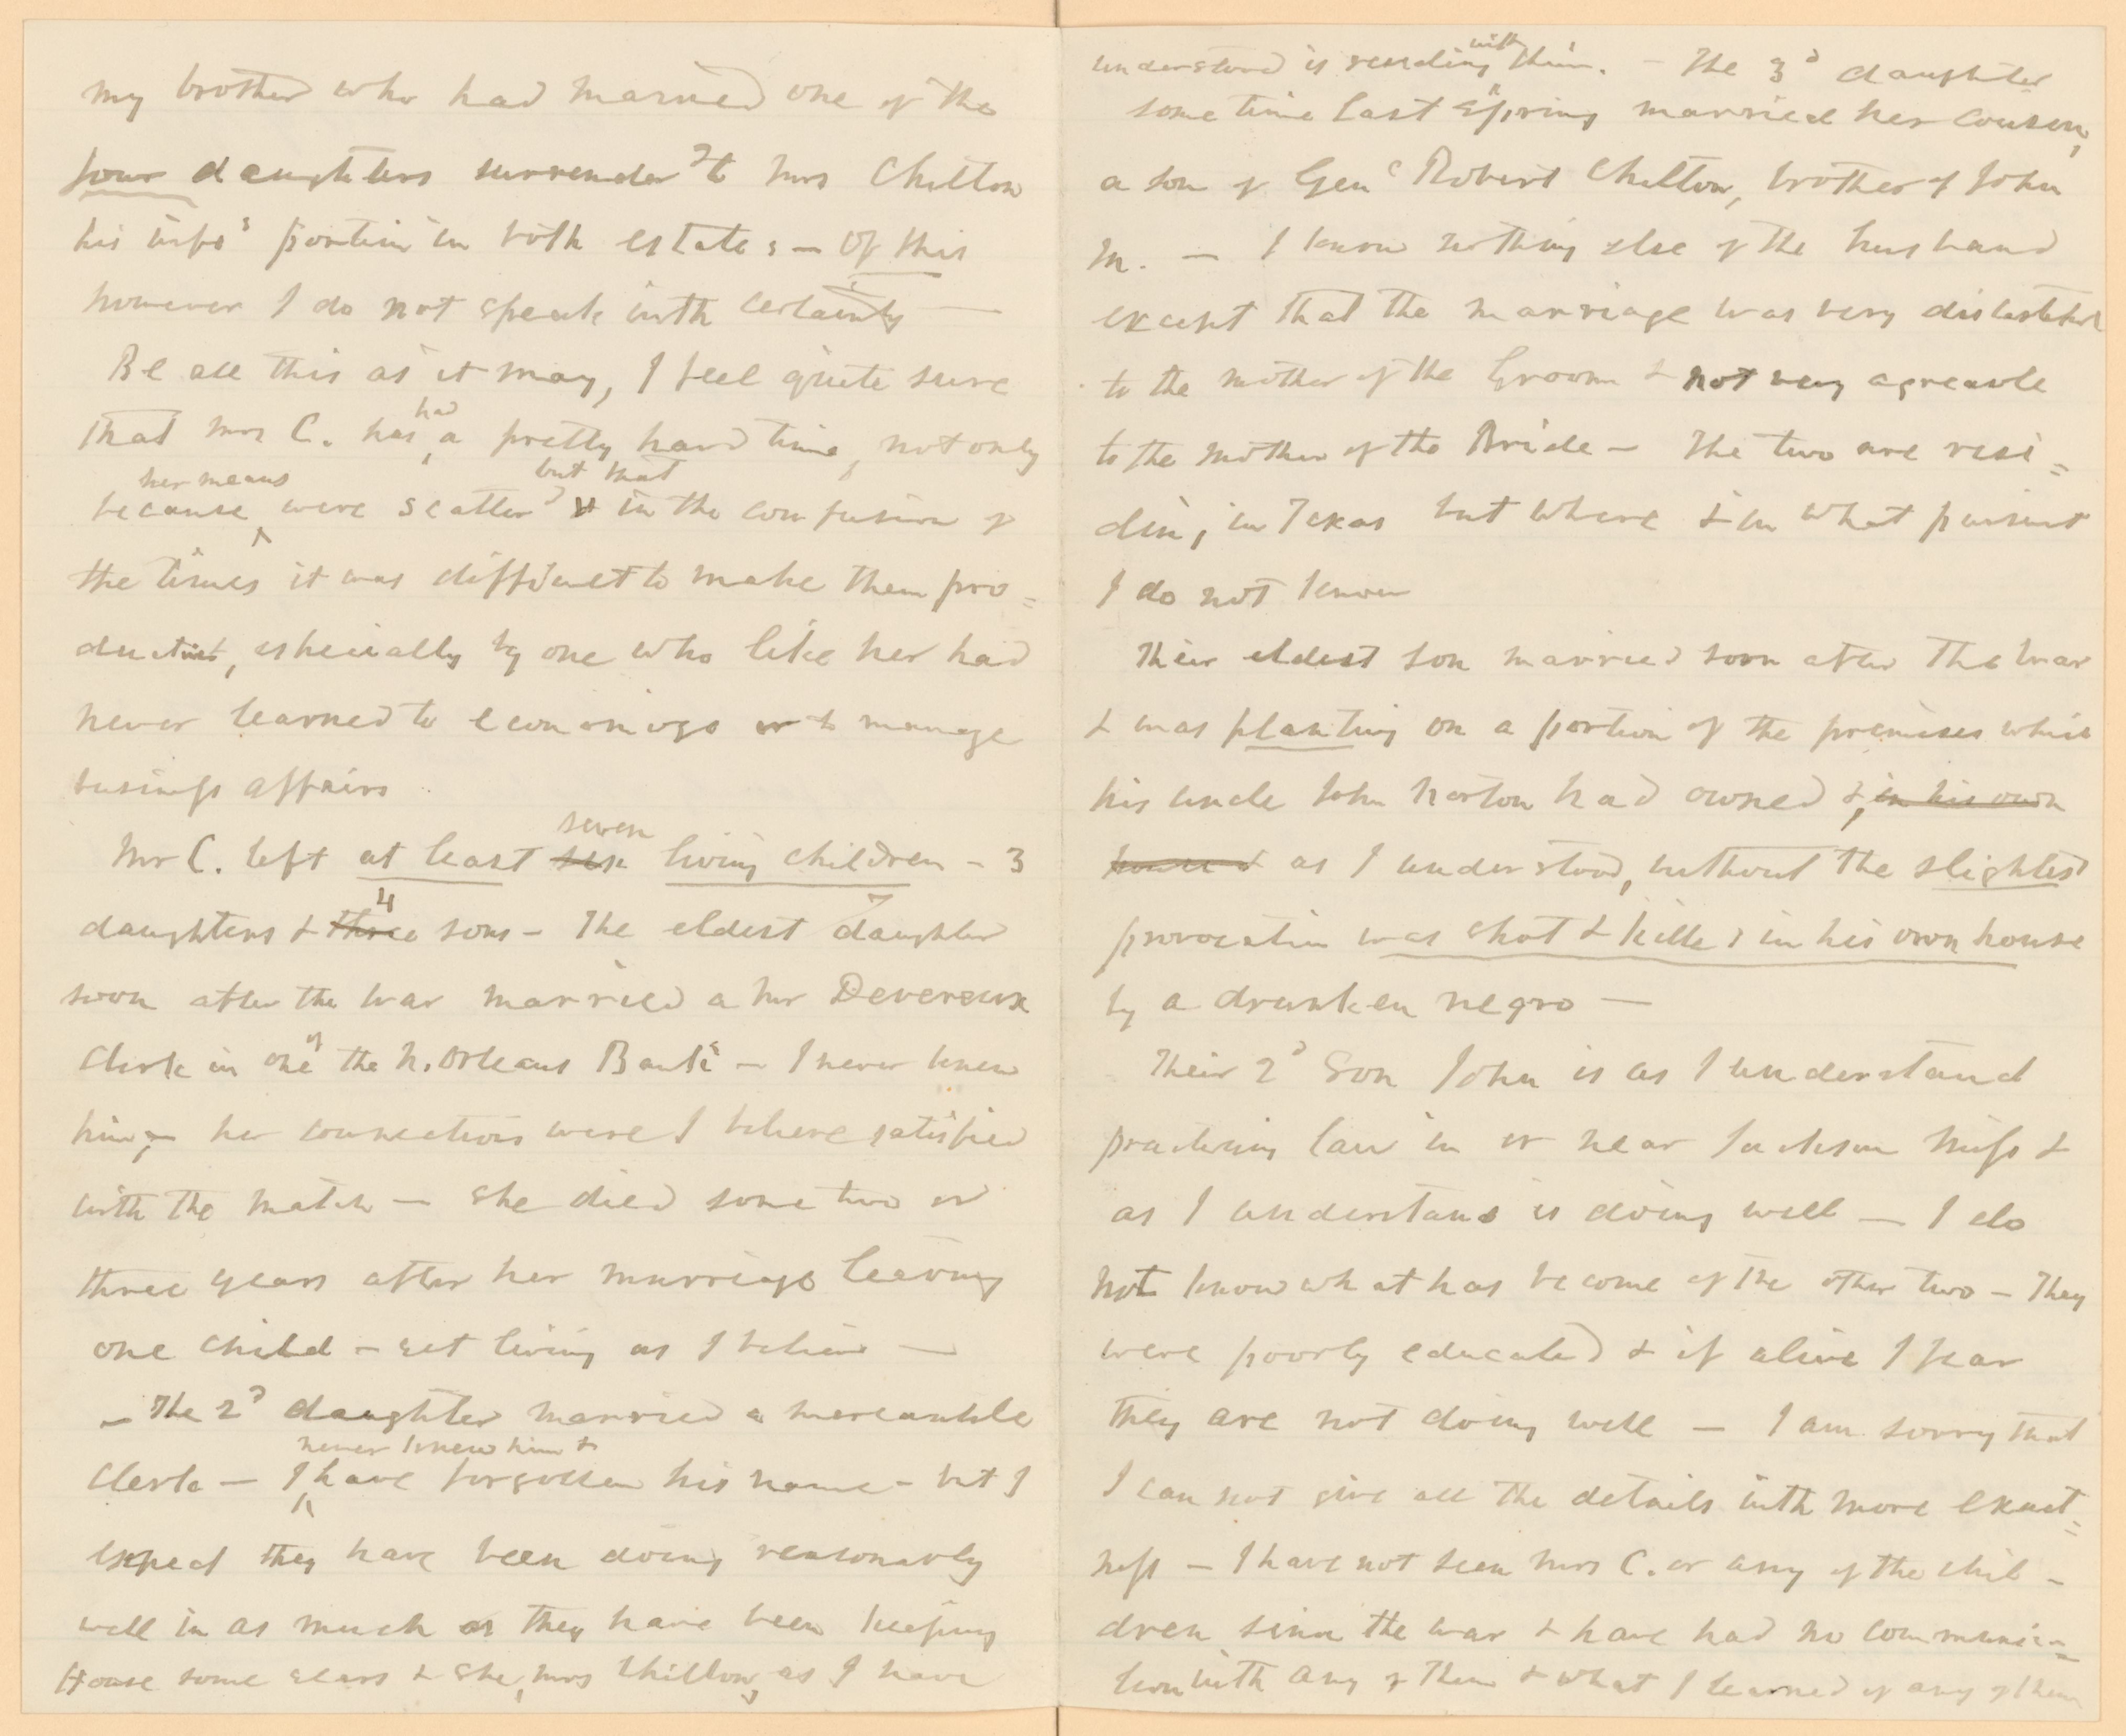 my brother who had married one of the
four daughters surrender^d to Mrs Chilton
his wifes' portion in both estates — Of this
however I do not speak with certainty —
Be all this as it may, I feel quite sure
that Mrs C. has had a pretty hard time, not only
because her means were scatter^d but that in the confusion of
the times it was difficult to make them pro=
ductive, especially by one who like her had
never learned to economize or to manage
business affairs
Mr C. left at least six seven living children – 3
daughters & three 4 sons – The eldest daughter
soon after the war married a Mr Devereux
Clerk in one of the N. Orleans Banks — I never knew
him, – her connections were I believe satisfied
with the match — She died some two or
three years after her marriage leaving
one child – yet living as I believe —
– The 2^d daughter married a mercantile
Clerk — I never knew him & have forgotten his name – but I
expect they have been doing reasonably
well in as much as they have been keeping
House some years & she, Mrs Chilton, as I have
understood is residing with them. – The 3^d daughter
some time last Spring married her cousin,
a son of Gen^l Robert Chilton, brother of John
M. — I know nothing else of the husband
except that the marriage was very distasteful
to the mother of the Groom & not very agreeable
to the mother of the Bride – The two are resi=
ding in Texas but where & in what pursuit
I do not know
Their eldest son married soon after the war
& was planting on a portion of the premises which
his uncle John Norton had owned &, in his own
house & as I understood, without the slightest
provocation was shot & killed in his own house
by a drunken negro —
Their 2^d Son John is as I understand
practicing law in or near Jackson Miss &
as I understand is doing well — I do
not know what has become of the other two – They
were poorly educated & if alive I fear
they are not doing well — I am sorry that
I can not give all the details with more exact=
ness – I have not seen Mrs C. or any of the chil–
dren since the war & have had no communica=
tion with any of them & what I learned of any of them